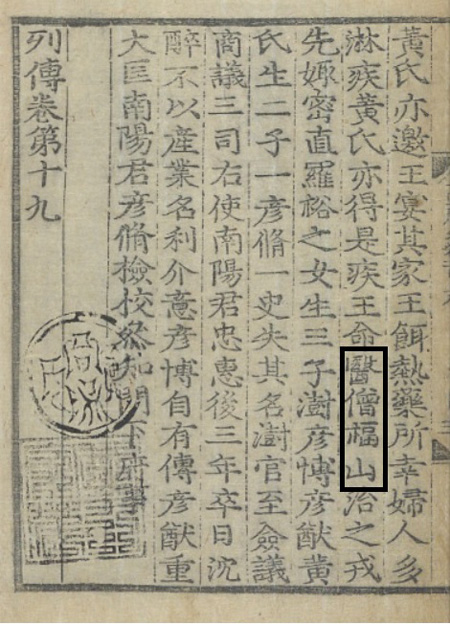 黃氏亦邀王宴其家王餌熱藥所幸婦人多
淋疾黃氏亦得是疾王命醫僧福山治之戎
先娵密直羅裕之女生三子澍彥博彥猷黃
氏生二子一彥脩一史失其名澍官至僉議
商議三司右使南陽君忠惠後三年卒日沈
醉不以產業名利介意彥博自有傳彥猷重
大匡南陽君彥脩檢校叅知門下府事
列傳卷第十九